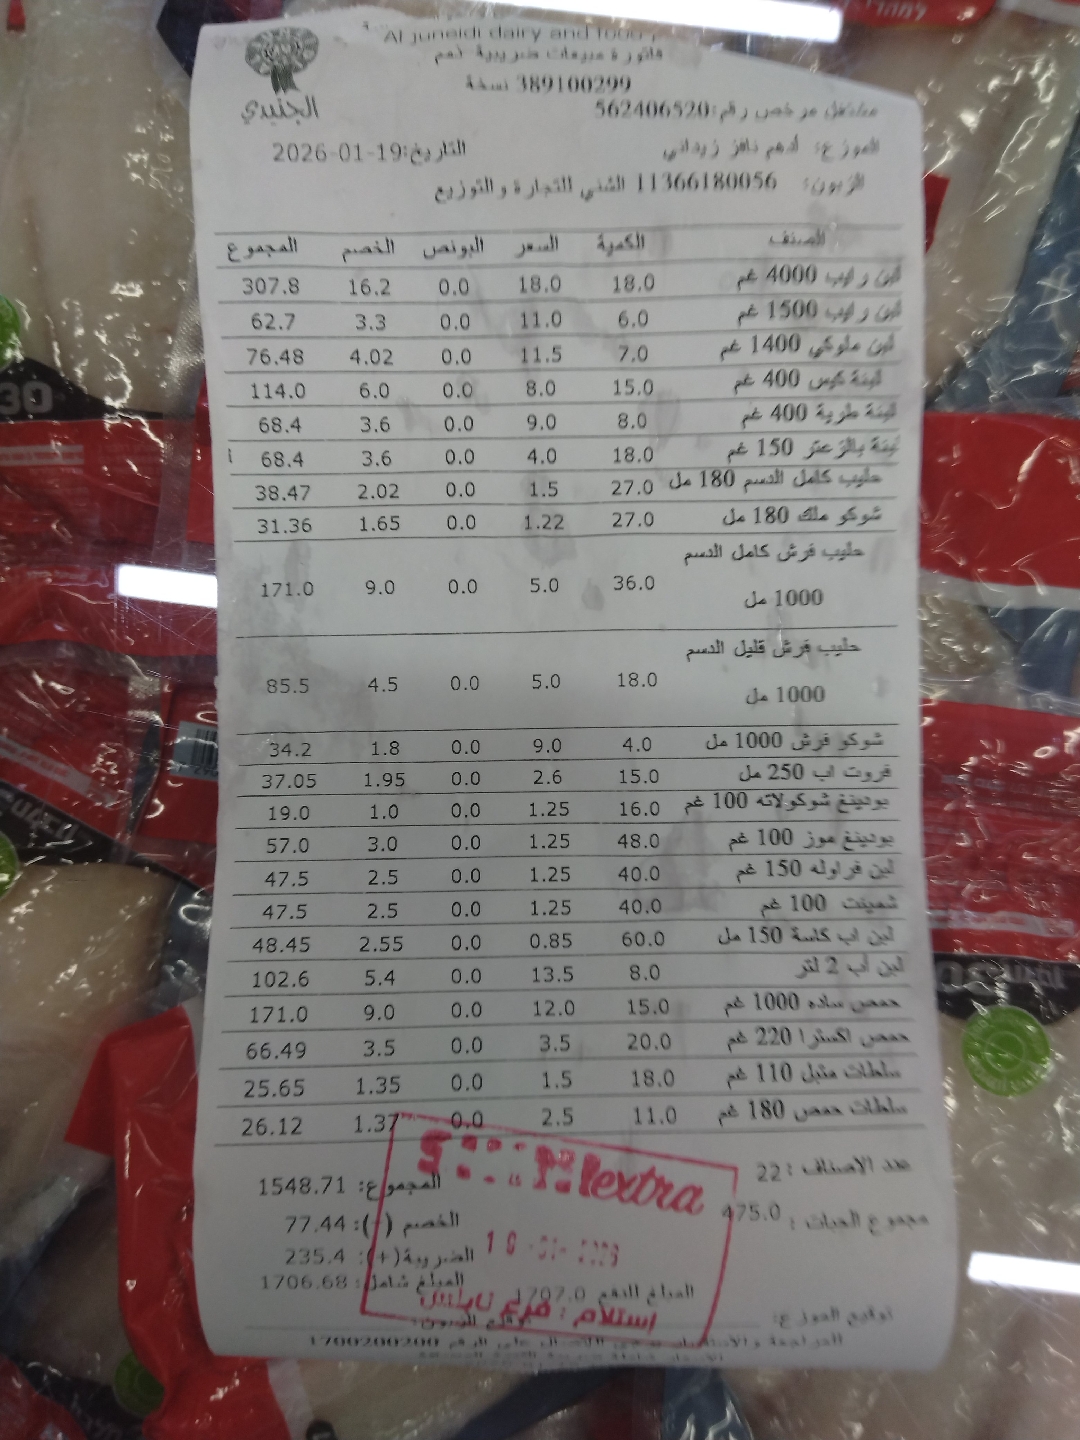 Al juneidi dairy and food
فاتورة مبيعات ضريبية
389100299 نسخة
الجنيدي
مشتغل مرخص رقم:562406520
الموزع: أدهم نافز زيداني
التاريخ:2026-01-19
الزبون: 11366180056 الشني للتجارة والتوزيع
الصنف الكمية السعر البونص الخصم المجموع
لبن رايب 4000 غم 18.0 18.0 0.0 16.2 307.8
لبن رايب 1500 غم 6.0 11.0 0.0 3.3 62.7
لبن ملوكي 1400 غم 7.0 11.5 0.0 4.02 76.48
لبنة كوس 400 غم 15.0 8.0 0.0 6.0 114.0
لبنة طرية 400 غم 8.0 9.0 0.0 3.6 68.4
لبنة بالزعتر 150 غم 18.0 4.0 0.0 3.6 68.4
حليب كامل الدسم 180 مل 27.0 1.5 0.0 2.02 38.47
شوكو ملك 180 مل 27.0 1.22 0.0 1.65 31.36
حليب فرش كامل الدسم
1000 مل 36.0 5.0 0.0 9.0 171.0
حليب فرش قليل الدسم
1000 مل 18.0 5.0 0.0 4.5 85.5
شوكو فرش 1000 مل 4.0 9.0 0.0 1.8 34.2
فروت اب 250 مل 15.0 2.6 0.0 1.95 37.05
بودينغ شوكولاته 100 غم 16.0 1.25 0.0 1.0 19.0
بودينغ موز 100 غم 48.0 1.25 0.0 3.0 57.0
لبن فراوله 150 غم 40.0 1.25 0.0 2.5 47.5
شمينت 100 غم 40.0 1.25 0.0 2.5 47.5
لبن اب كاسة 150 مل 60.0 0.85 0.0 2.55 48.45
لبن أب 2 لتر 8.0 13.5 0.0 5.4 102.6
حمص ساده 1000 غم 15.0 12.0 0.0 9.0 171.0
حمص اكسترا 220 غم 20.0 3.5 0.0 3.5 66.49
سلطات متبل 110 غم 18.0 1.5 0.0 1.35 25.65
سلطات حمص 180 غم 11.0 2.5 0.0 1.37 26.12
عدد الاصناف : 22
المجموع: 1548.71
مجموع الحبات : 475.0
الخصم (-): 77.44
الضريبة(+): 235.4
المبلغ شامل: 1706.68
المبلغ الدفع 1707.0
extra
استلام : فرع نابلس
توقيع الموزع:
توقيع الزبون:
1700200200